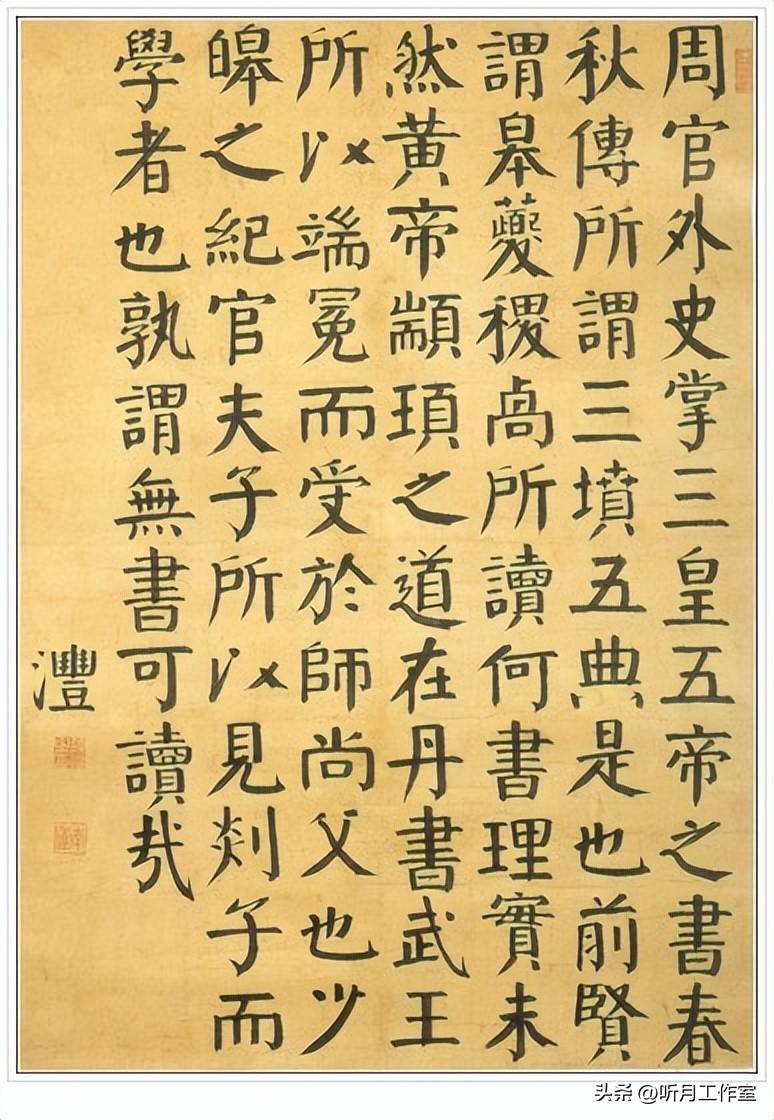 周官外史掌三皇五帝之書春
秋傳所謂三墳五典是也前賢
謂皋夔稷卨所讀何書理實未
然黄帝顓頊之道在丹書武王
所以端冕而受於師尚父也少
皞之紀官夫子所以見郯子而
學者也孰謂無書可讀哉
澧
头条 @听月工作室